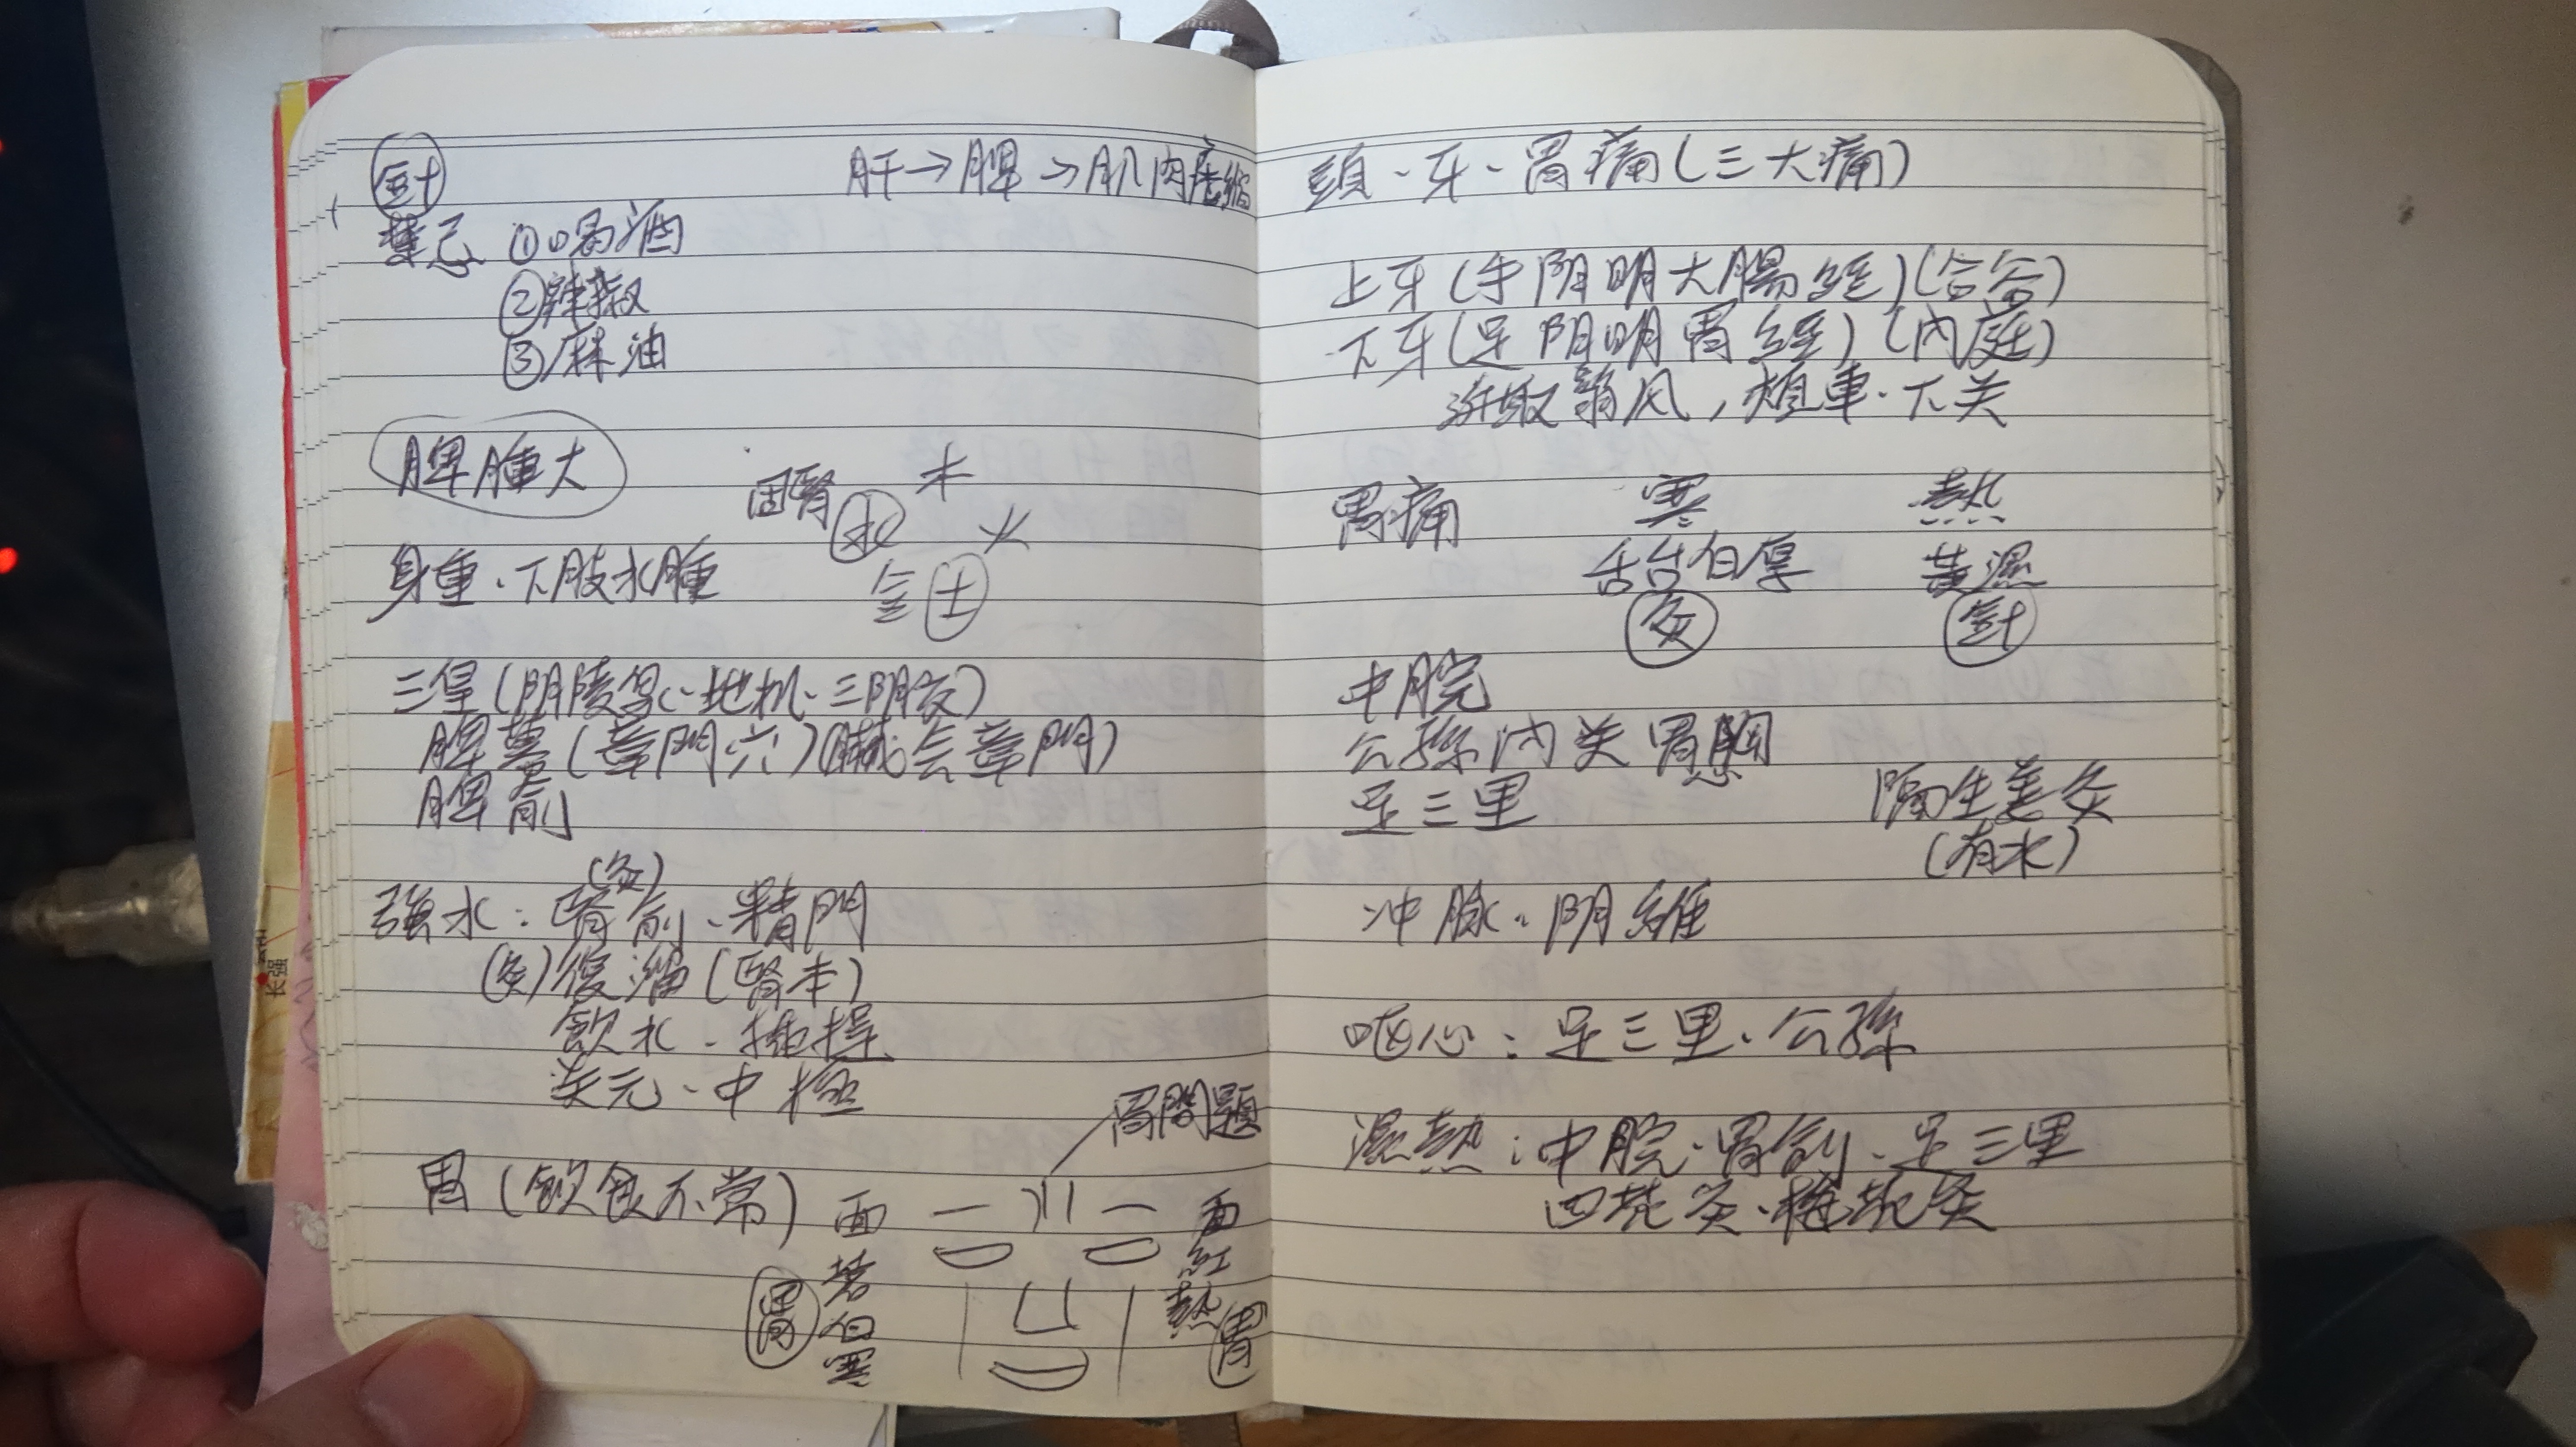 針
肝→脾→肌肉痿縮
禁忌 ①喝酒
②辣椒
③麻油
脾腫大
固腎 水 木
火
金 土
身重、下肢水腫
三皇(阴陵泉、地机、三阴交)
脾募(章門穴)(臟会章門)
脾俞
(灸)
強水:腎俞、精門
(灸)復溜(腎本)
飲水、
关元、中極
胃問題
胃(飲食不常)
面 苍白寒 胃
面紅熱 胃
长强
頭、牙、胃痛(三大痛)
上牙(手阴明大腸経)(合谷)
下牙(足阴明胃経)(内庭)
選取翳风,頰車、下关
胃痛 寒 熱
舌台白厚 黄濕
灸 針
中脘
公孫内关胃胸
足三里
隔生姜灸
(有水)
冲脉、阴維
呕心:足三里、公孫
濕熱:中脘、胃俞、足三里
四花灸、梅花灸